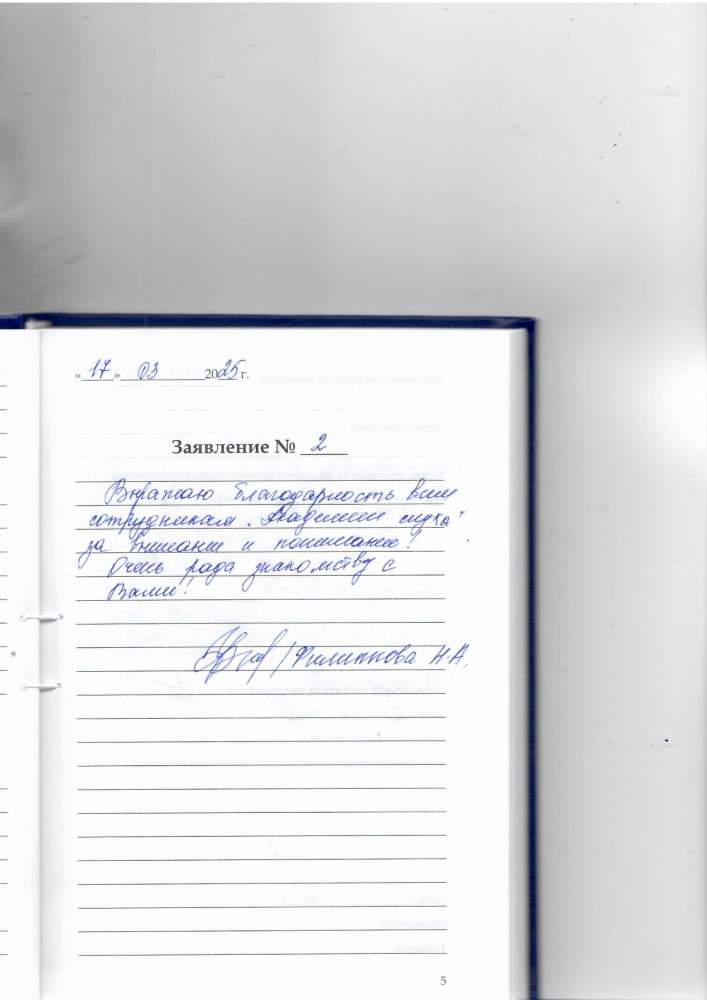 «17» 03 2025 г.
Заявление № 2
Выражаю благодарность всем
сотрудникам "Академии слуха"
за внимание и понимание!
Очень рада знакомству с
Вами!
/Филиппова Н.А.
5